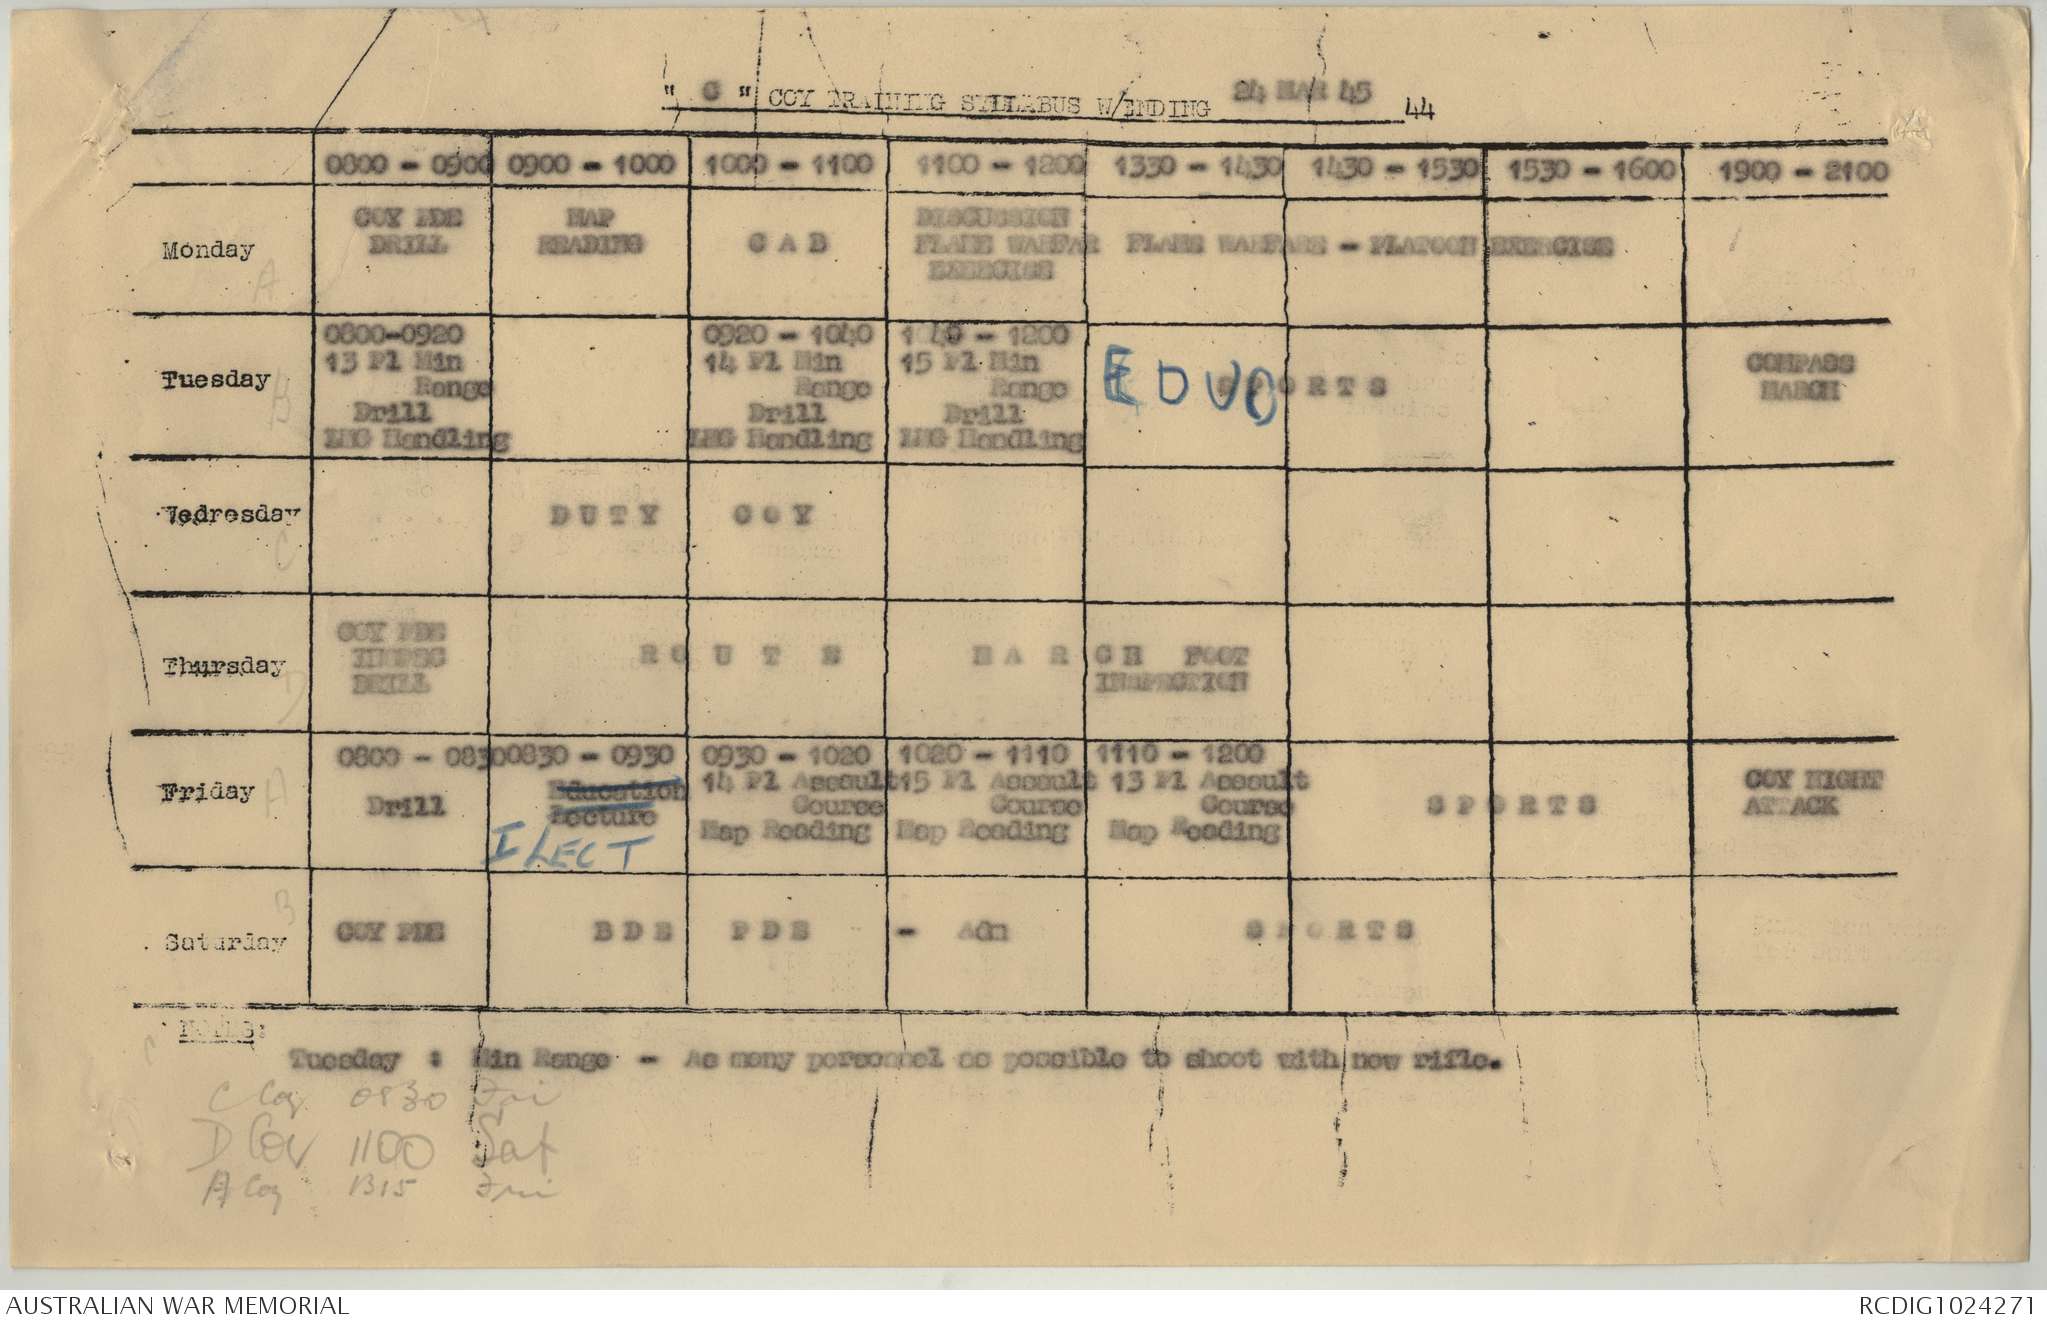 " C " COY TRAINING SYLLABUS W/ENDING 24 MAR 45 44
0800 - 0900 0900 - 1000 1000 - 1100 1100 - 1200 1330 - 1430 1430 - 1530 1530 - 1600 1900 - 2100
Monday
COY PDE
DRILL
MAP
READING
G A B
DISCUSSION
FLAME WARFAR
EXERCISE
FLAME WARFARE - PLATOON EXERCISE
A
Tuesday
0800-0920
13 Pl Min
Range
Drill
LMG Handling
0920 - 1040
14 Pl Min
Range
Drill
LMG Handling
1040 - 1200
15 Pl Min
Range
Drill
LMG Handling
EDUC
S P O R T S
COMPASS
MARCH
B
Wednesday
D U T Y C O Y
C
Thursday
COY PDE
INSPEC
DRILL
R O U T E M A R C H FOOT
INSPECTION
D
Friday
0800 - 0830
Drill
0830 - 0930
Education
Lecture
I LECT
0930 - 1020
14 Pl Assault
Course
Map Reading
1020 - 1110
15 Pl Assault
Course
Map Reading
1110 - 1200
13 Pl Assault
Course
Map Reading
S P O R T S
COY NIGHT
ATTACK
A
Saturday
COY PDE
B D E P D E - Adm
S P O R T S
B
NOTES:
C
Tuesday : Min Range - As many personnel as possible to shoot with new rifle.
C Coy 0830 Fri
D Coy 1100 Sat
A Coy 1315 Fri
AUSTRALIAN WAR MEMORIAL
RCDIG1024271